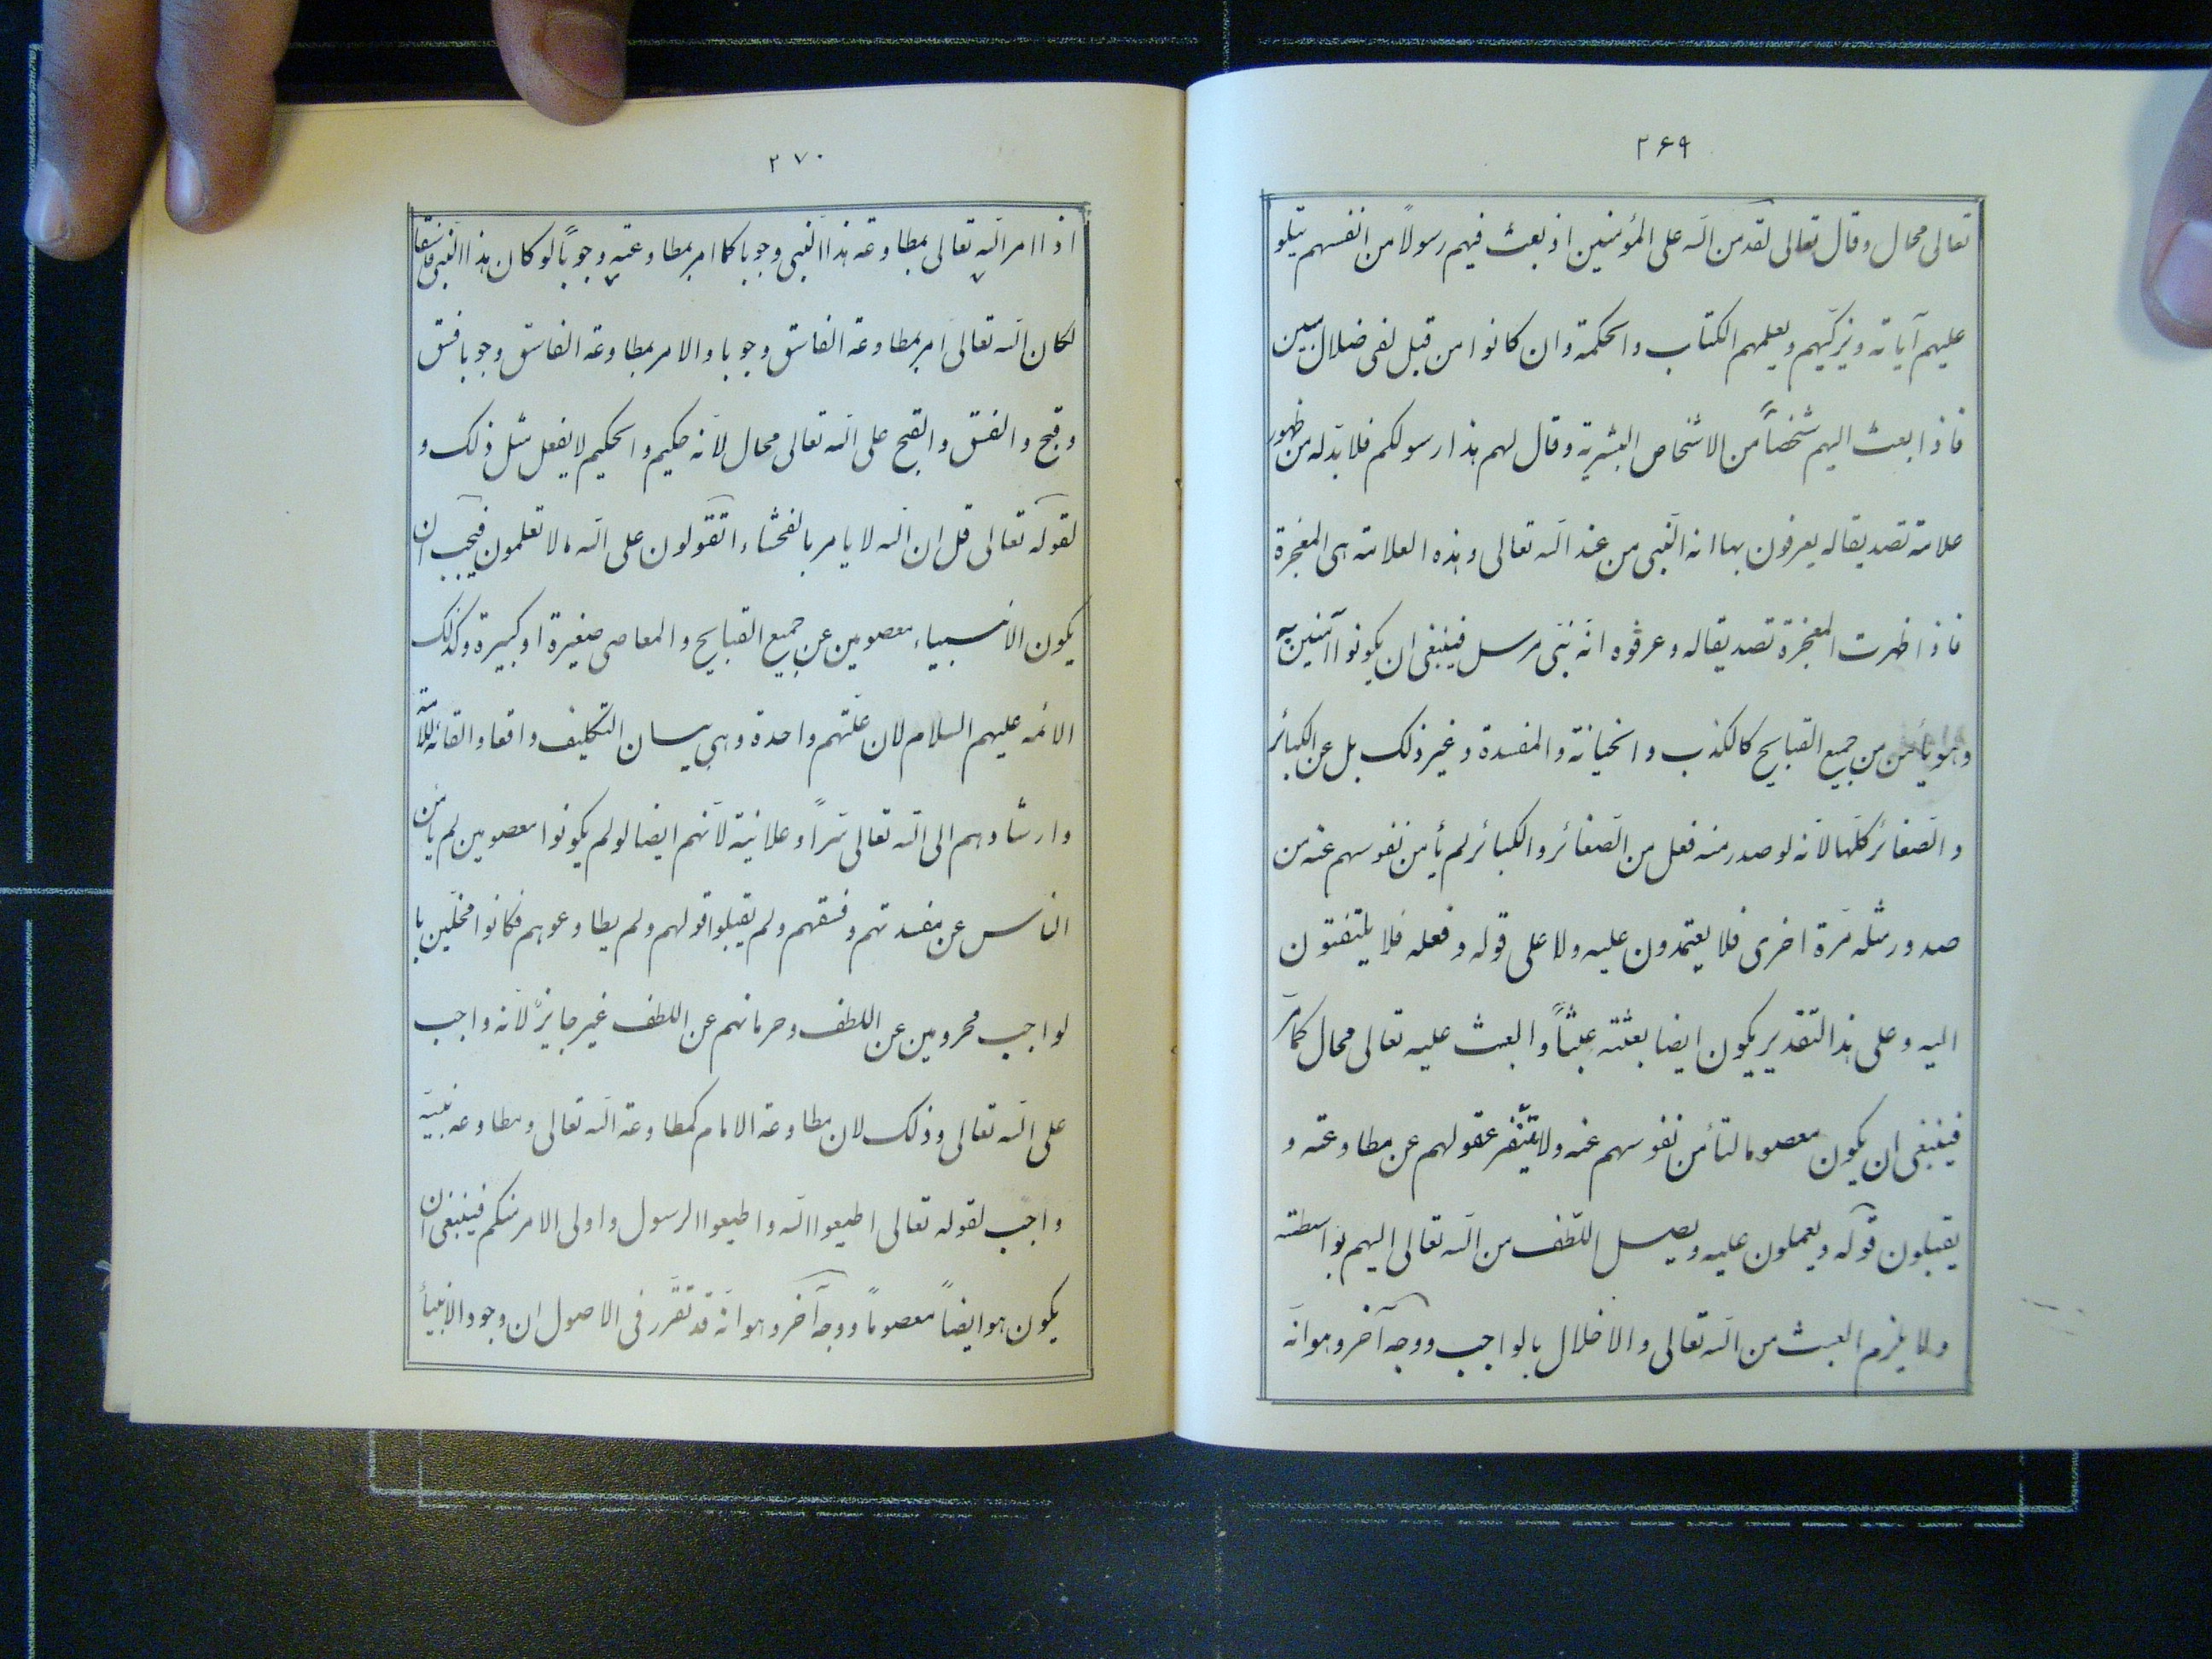 ۲۶۹
تعالى محال وقال تعالى لقد من الله على المؤمنين اذ بعث فيهم رسولاً من انفسهم يتلو
عليهم آياته ويزكّيهم ويعلمهم الكتاب والحكمة وان كانوا من قبل لفى ضلال مبين
فاذا بعث اليهم شخصاً من الاشخاص البشرية وقال لهم هذا رسولكم فلا بدّ له من ظهور
علامة تصديقا له يعرفون بها انه النّبى من عند الله تعالى وهذه العلامة هى المعجزة
فاذا ظهرت المعجزة تصديقا له وعرفوه انّه نبّى مرسل فينبغى ان يكونوا آمنين به
وهو يأمن من جميع القبايح كالكذب والخيانة والمفسدة وغير ذلك بل عن الكبائر
والصّغائر كلّها لانّه لو صدر منه فعل من الصّغائر والكبائر لم يأمن نفوسهم عنه من
صدور مثله مرّة اخرى فلا يعتمدون عليه ولا على قوله وفعله فلا يلتفتون
اليه وعلى هذا التقدير يكون ايضا بعثته عبثاً والبعث عليه تعالى محال كما مرّ
فينبغى ان يكون معصوما لتأمن نفوسهم عنه ولا يتنفّر عقولهم عن مطاوعته و
يقبلون قوله ويعملون عليه ويصل اللّطف من الله تعالى اليهم بواسطته
ولا يلزم العبث من الله تعالى والاخلال بالواجب ووجه آخر وهو انّه
۲۷۰
اذا امر الله تعالى بمطاوعة هذا النّبى وجوبا كما امر بمطاوعته وجوباً لو كان هذا النّبى فاسقا
لكان الله تعالى امر بمطاوعة الفاسق وجوبا والامر بمطاوعة الفاسق وجوبا فسق
وقبح والفسق والقبح على الله تعالى محال لانه حكيم والحكيم لا يفعل مثل ذلك و
لقوله تعالى قل ان الله لا يامر بالفحشاء اتقولون على الله ما لا تعلمون فيجب ان
يكون الانبياء معصومين عن جميع القبايح والمعاصى صغيرة او كبيرة وكذلك
الائمه عليهم السلام لان علّتهم واحدة وهى بيان التكليف واقعا والقائه للامّة
وارشادهم الى الله تعالى سّراً وعلانية لانّهم ايضا لو لم يكونوا معصومين لم يأمن
النّاس عن مفسدتهم وفسقهم ولم يقبلوا قولهم ولم يطاوعوهم فكانوا مخلّين با
لواجب محرومين عن اللطف وحرمانهم عن اللطف غير جايزٍ لانه واجب
على الله تعالى وذلك لان مطاوعة الامام كمطاوعة الله تعالى ومطاوعه نبيّه
واجب لقوله تعالى اطيعوا الله واطيعوا الرسول واولى الامر منكم فينبغى ان
يكون هو ايضاً معصوماً ووجه آخر وهو انّه قد تقّرر فى الاصول ان وجود الانبياء